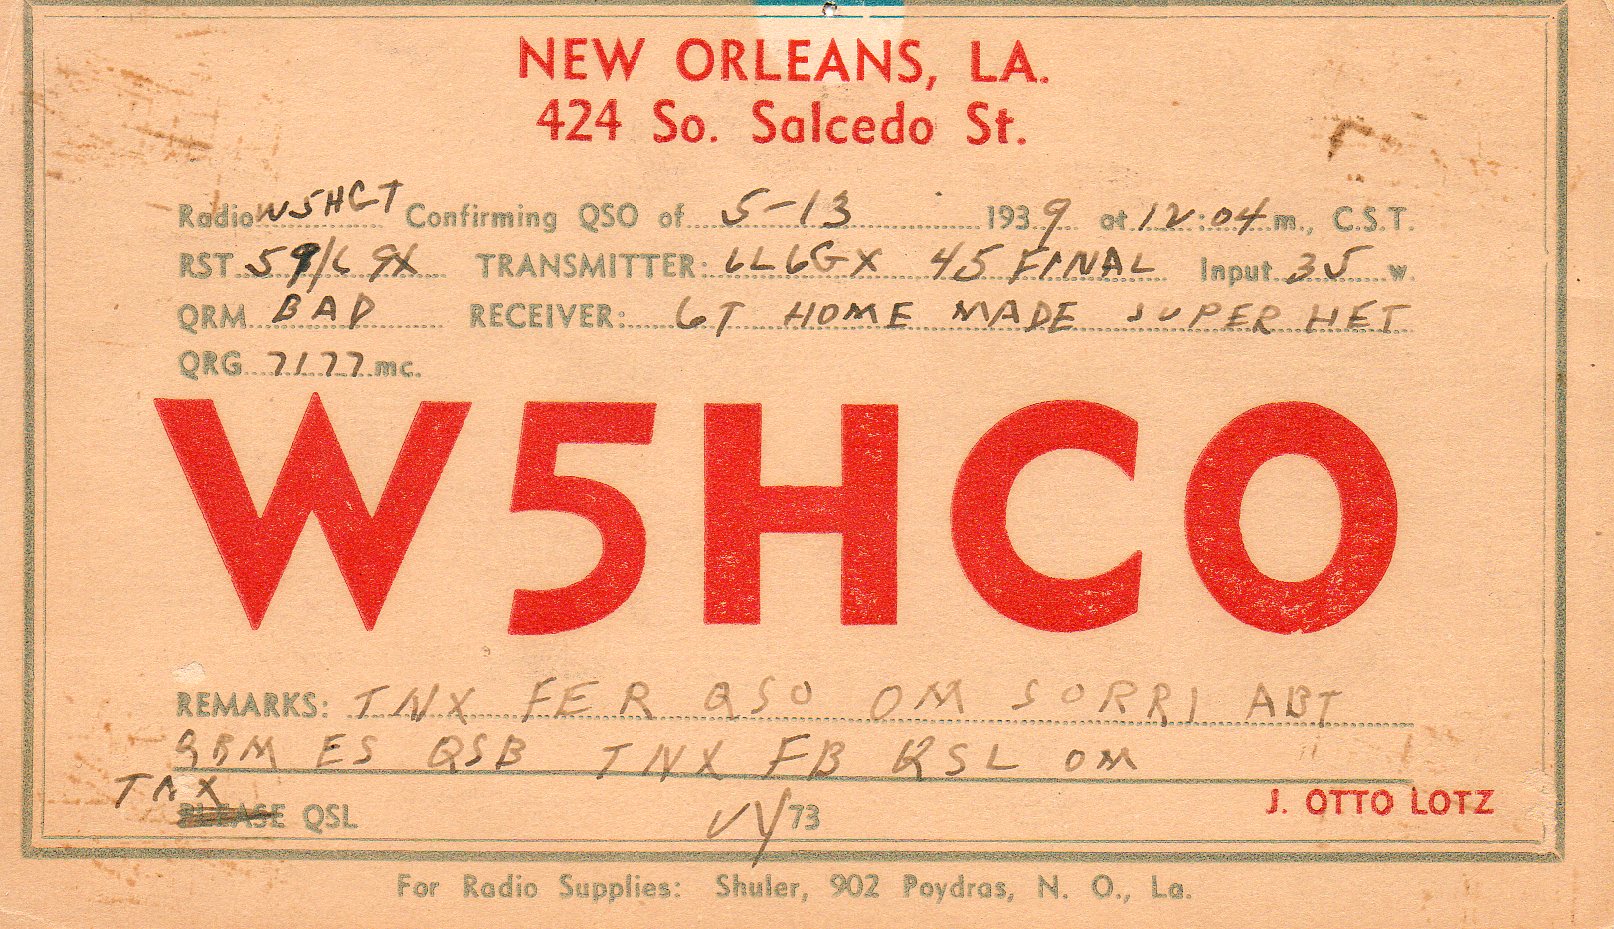 NEW ORLEANS, LA.
424 So. Salcedo St.
Radio W5HCT Confirming QSO of 5-13 1939 at 12:04 m., C.S.T.
RST 59/69X TRANSMITTER: 6L6GX 45 FINAL Input 35 w.
QRM BAD RECEIVER: 6T HOME MADE SUPER HET
QRG 7177 mc.
W5HCO
REMARKS: TNX FER QSO OM SORRI ABT
QRM ES QSB TNX FB QSL OM
TNX
PLEASE QSL VY 73 J. OTTO LOTZ
For Radio Supplies: Shuler, 902 Poydras, N. O., La.